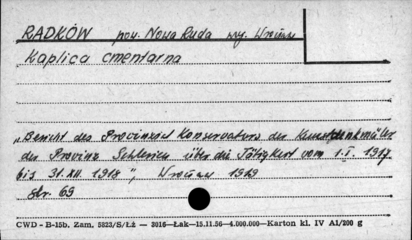 RADKÓW pow. Nowa Ruda woj. Wrocław
Kaplica cmentarna
„Bericht des Provinzial Konservators der Kunstdenkmäler
der Provinz Schlesien über die Tätigkeit vom 1.I. 1917
bis 31.XII 1918", Wrocław 1919
str. 69
CWD - B-15b. Zam. 5823/S/Łż — 3016—Łak—15.11.56—4.000.000—Karton kl. IV A1/200 g